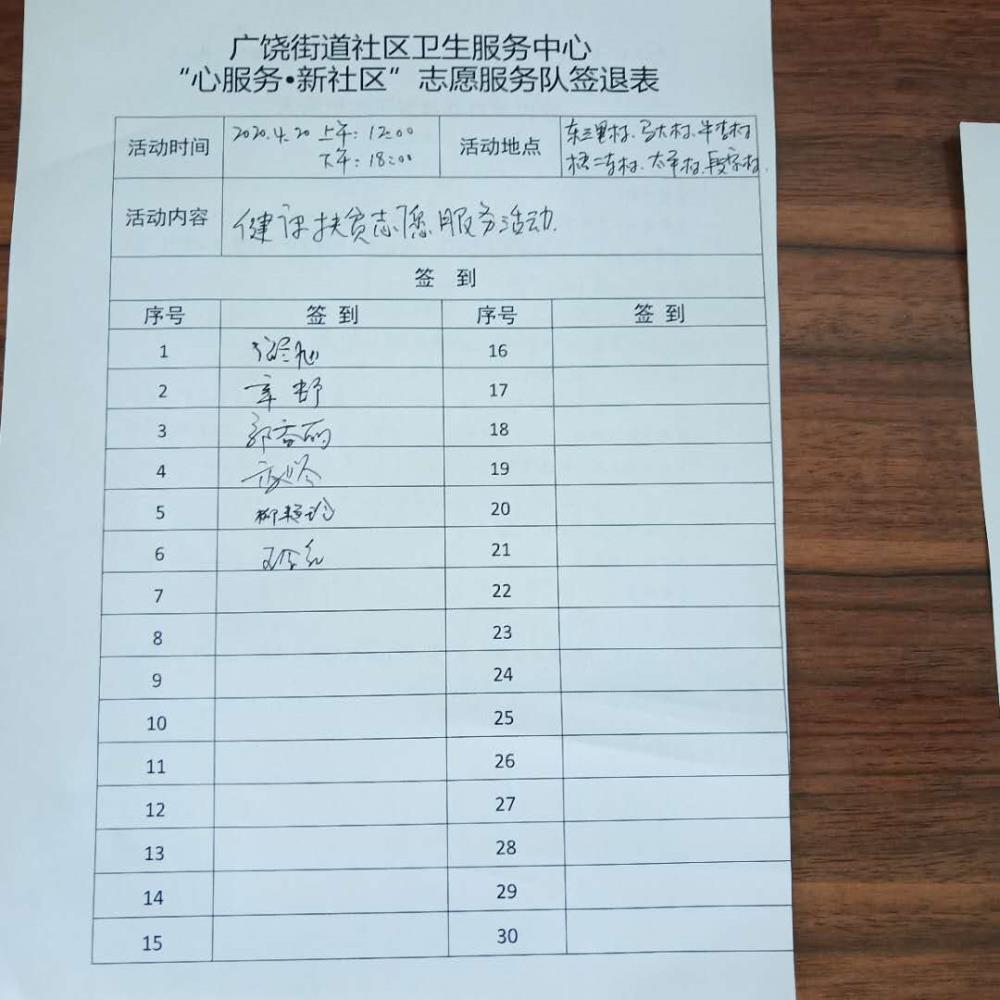 广饶街道社区卫生服务中心
“心服务•新社区”志愿服务队签退表
活动时间 2020.4.20 上午：12:00
下午：18:00
活动地点 东三里村、马大村、牛舍村
太平村、段家村
活动内容 健康扶贫志愿服务活动.
签 到
序号 签到 序号 签到
1 16
2 章舒 17
3 郭香丽 18
4 19
5 20
6 21
7 22
8 23
9 24
10 25
11 26
12 27
13 28
14 29
15 30